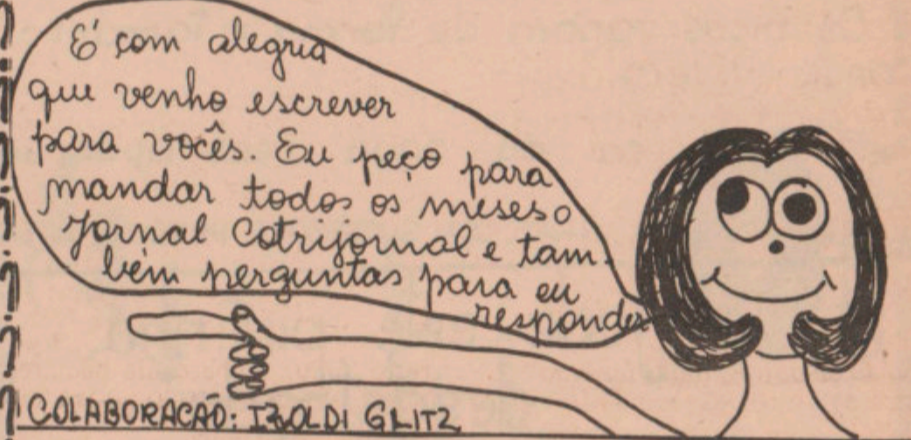 É com alegria
que venho escrever
para vocês. Eu peço para
mandar todos os meses o
Jornal Cotrijornal e tam-
bém perguntas para eu
responder
COLABORAÇÃO: IZOLDI GLITZ